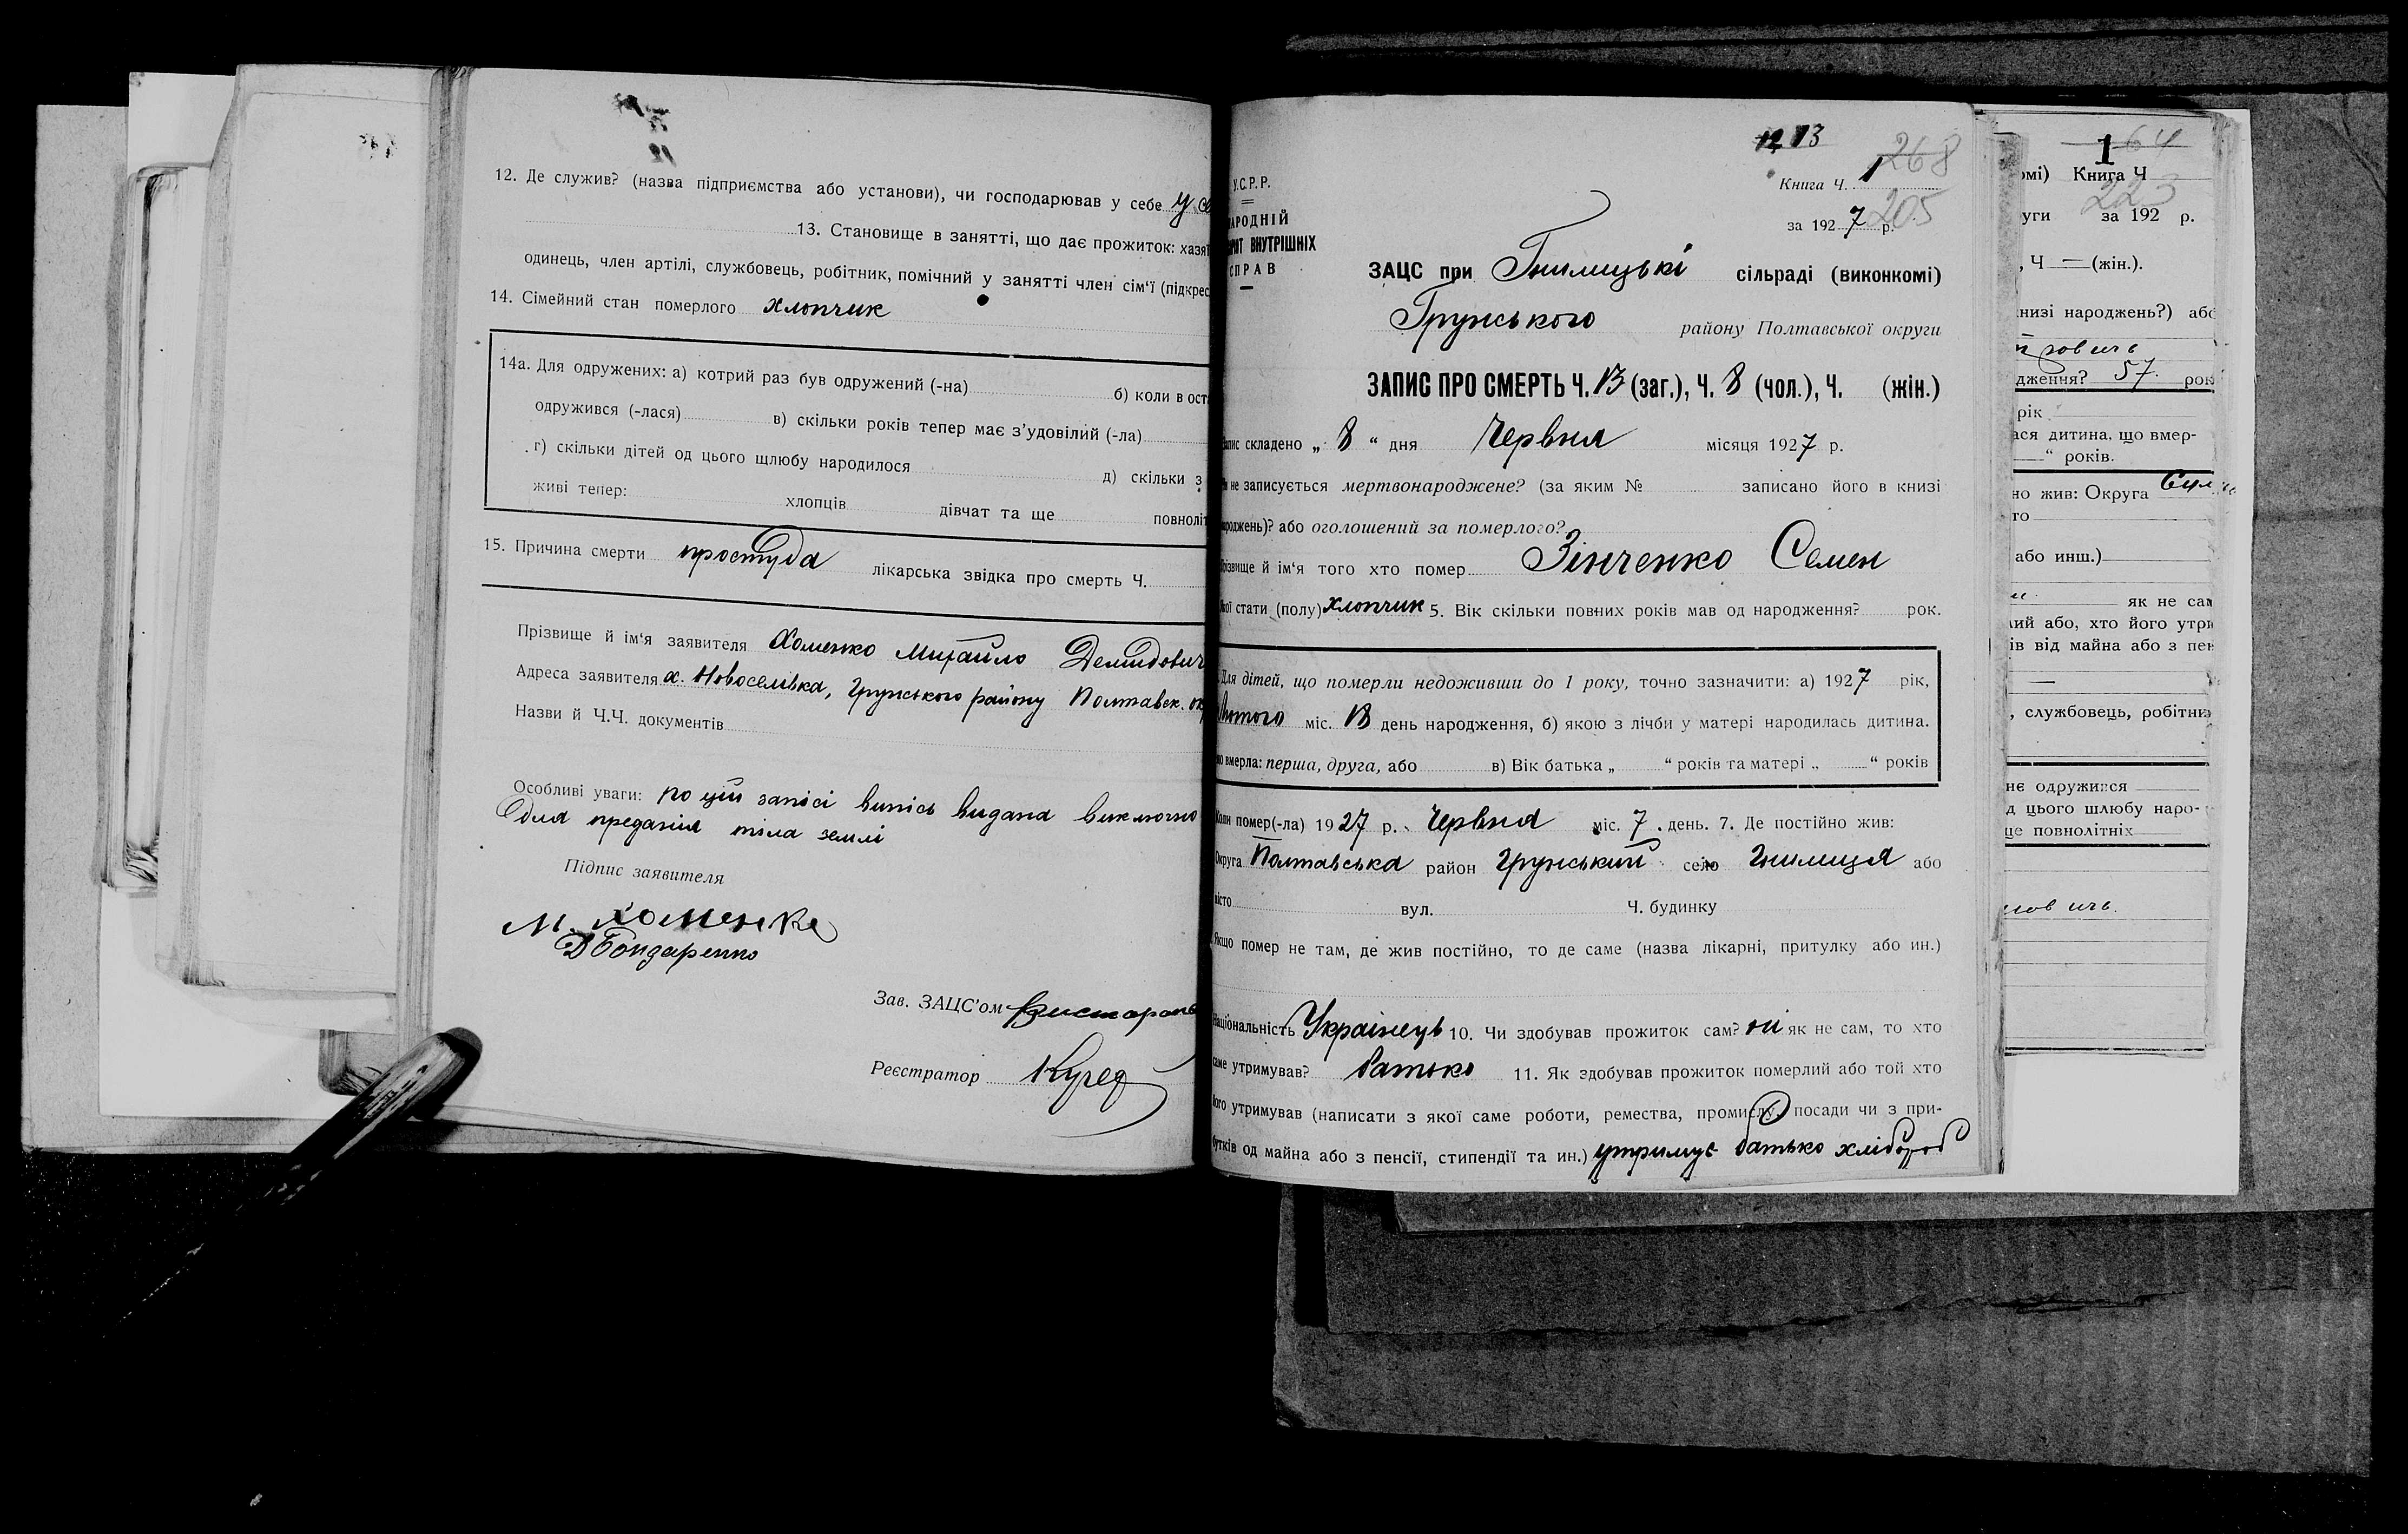 12. Де служив? (назва підприємства або установи), чи господарював у себе у
13. Становище в занятті, що дає прожиток: хазя
одинець, член артілі, службовець, робітник, помічний у занятті член сім'ї (підкрес
14. Сімейний стан померлого хлопчик
14а. Для одружених: а) котрий раз був одружений (-на) б) коли в ост
одружився (-лася) в) скільки років тепер має з'удовілий (-ла)
г) скільки дітей од цього шлюбу народилося д) скільки з
живі тепер: хлопців дівчат та ще повноліт
15. Причина смерти простуда лікарська звідка про смерть Ч.
Прізвище й ім'я заявителя Хоменко Михайло Демидович
Адреса заявителя х. Новоселівка, Грунського району Полтавск. ок
Назви й Ч.Ч. документів
Особливі уваги: по цій записі випісь видана виключно
для преданія тіла землі
Підпис заявителя
М. Хоменко
Д Бондаренко
Зав. ЗАЦС'ом
Реєстратор
12 13
268
Книга Ч. 1
205
за 1927 р.
У.С.Р.Р.
АРОДНІЙ
РІЯТ ВНУТРІШНІХ
СПРАВ
ЗАЦС при Гнилицькі сільраді (виконкомі)
Грунського району Полтавської округи
ЗАПИС ПРО СМЕРТЬ Ч. 13 (заг.), Ч. 8 (чол.), Ч. (жін.)
апис складено „ 8 “ дня Червня місяця 1927 р.
и не записується мертвонароджене? (за яким № записано його в книзі
ароджень)? або оголошений за померлого?
різвище й ім'я того хто помер Зінченко Семен
кої стати (полу) хлопчик 5. Вік скільки повних років мав од народження? рок.
Для дітей, що померли недоживши до 1 року, точно зазначити: а) 1927 рік,
Лютого міс. 13 день народження, б) якою з лічби у матері народилась дитина.
що вмерла: перша, друга, або в) Вік батька „ “ років та матері „ “ років
Коли помер(-ла) 1927 р. Червня міс. 7. день. 7. Де постійно жив:
Округа Полтавська район Грунський село Гнилиця або
місто вул. Ч. будинку
Якщо помер не там, де жив постійно, то де саме (назва лікарні, притулку або ин.)
Національність Українець 10. Чи здобував прожиток сам? ні як не сам, то хто
саме утримував? батько 11. Як здобував прожиток померлий або той хто
його утримував (написати з якої саме роботи, ремества, промислу, посади чи з при-
бутків од майна або з пенсії, стипендії та ин.) утримує батько хлібороб
64
омі) Книга Ч 1
223
уги за 192 р.
, Ч — (жін.).
книзі народжень?) або
дження? 57 рок
рік
ася дитина, що вмер-
“ років.
но жив: Округа
го
або инш.)
як не сам
ий або, хто його утри
ів від майна або з пен
, службовець, робітни
не одружився
д цього шлюбу наро-
ще повнолітніх